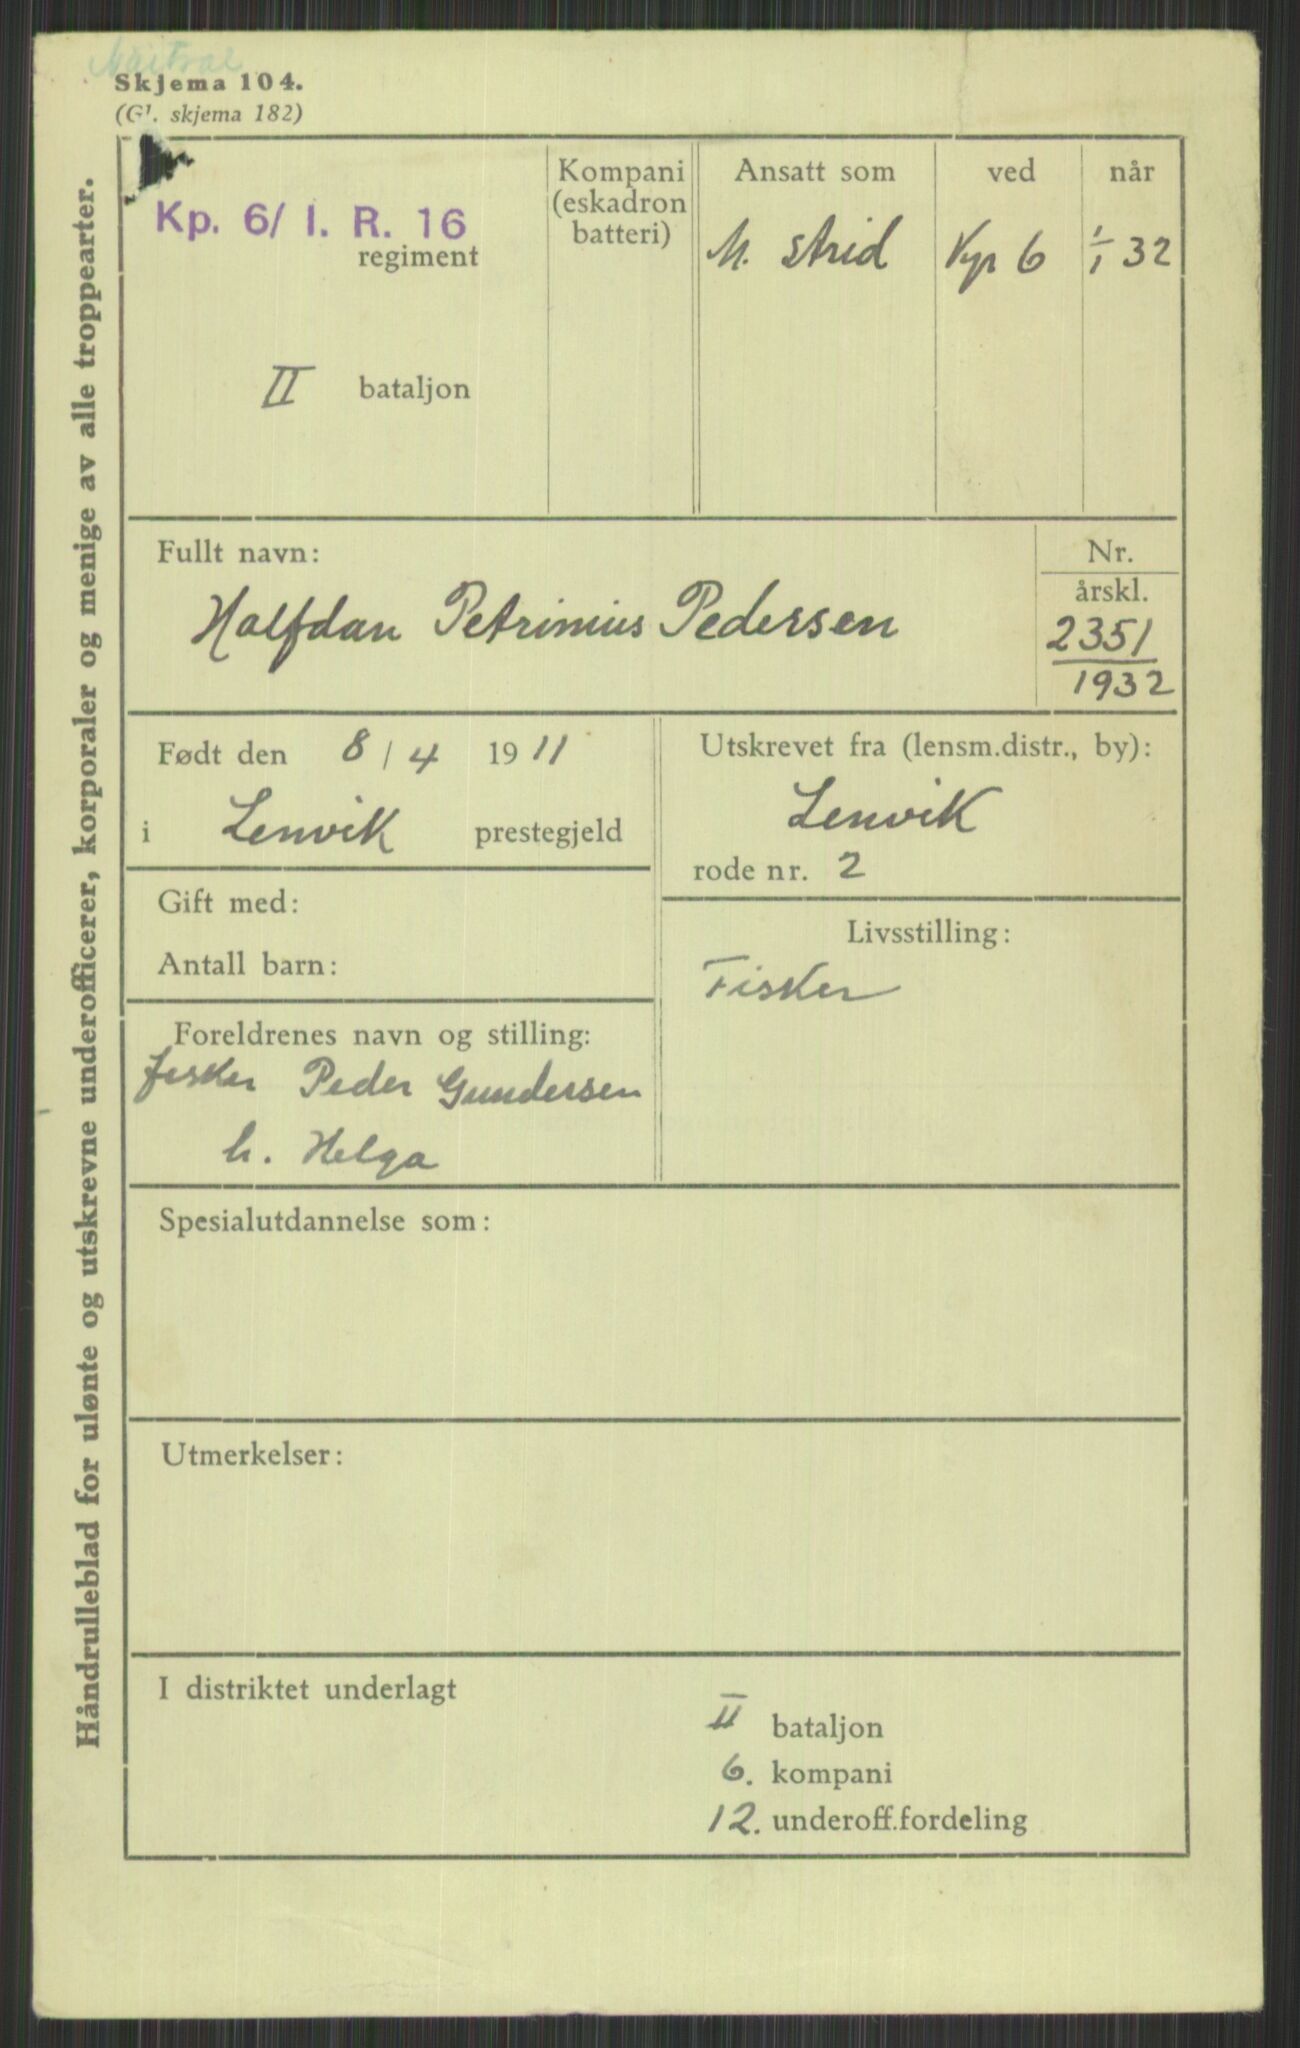 Skjema 104.
(Gl. skjema 182)
Håndrulleblad for ulønte og utskrevne underofficerer, korporaler og menige av alle troppearter.
Kp. 6/ I. R. 16
regiment
II bataljon
Kompani
(eskadron
batteri)
Ansatt som
M. strid
ved
Kp 6
når
1/1 32
Fullt navn:
Halfdan Petrinius Pedersen
Nr.
årskl.
2351
1932
Født den 8/4 1911
i Lenvik prestegjeld
Utskrevet fra (lensm.distr., by):
Lenvik
rode nr. 2
Gift med:
Antall barn:
Livsstilling:
Fisker
Foreldrenes navn og stilling:
fisker Peder Gundersen
h. Helga
Spesialutdannelse som:
Utmerkelser:
I distriktet underlagt
II bataljon
6. kompani
12. underoff.fordeling